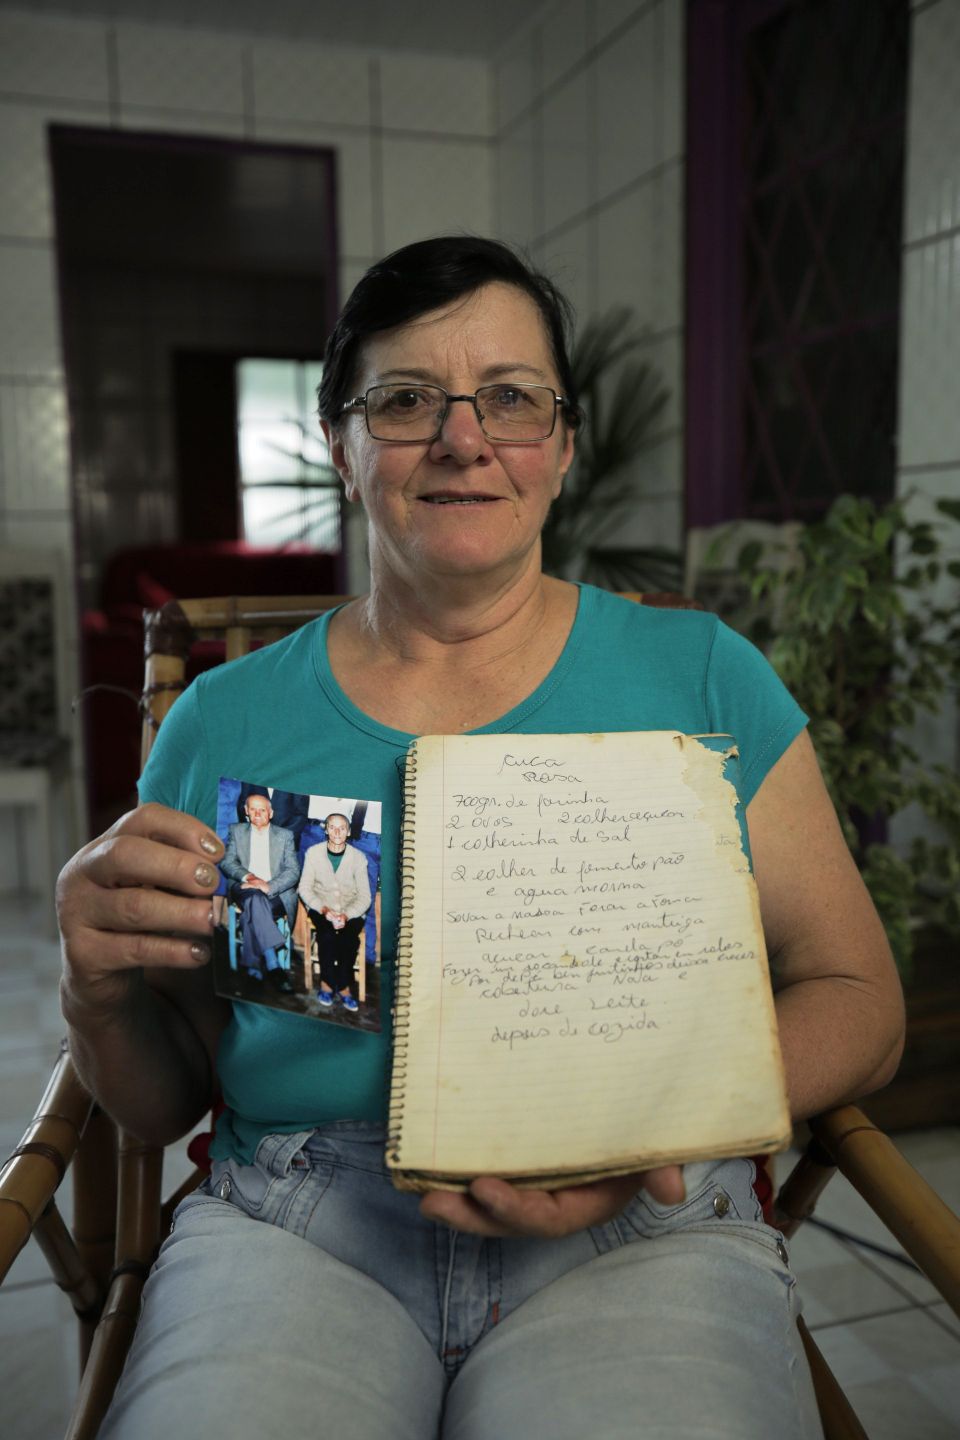 Cuca
Rosa
700gr. de farinha
2 ovos 2 colher açucar
1 colherinha de sal
2 colher de fomento pão
e agua morna
Sovar a massa
Rechear com manteiga
açucar canela pó
Fazer um e cortar em rodas
por de pé bem juntinhos deixa crecer
cobertura Nata e
doce Leite.
depois de cozida.